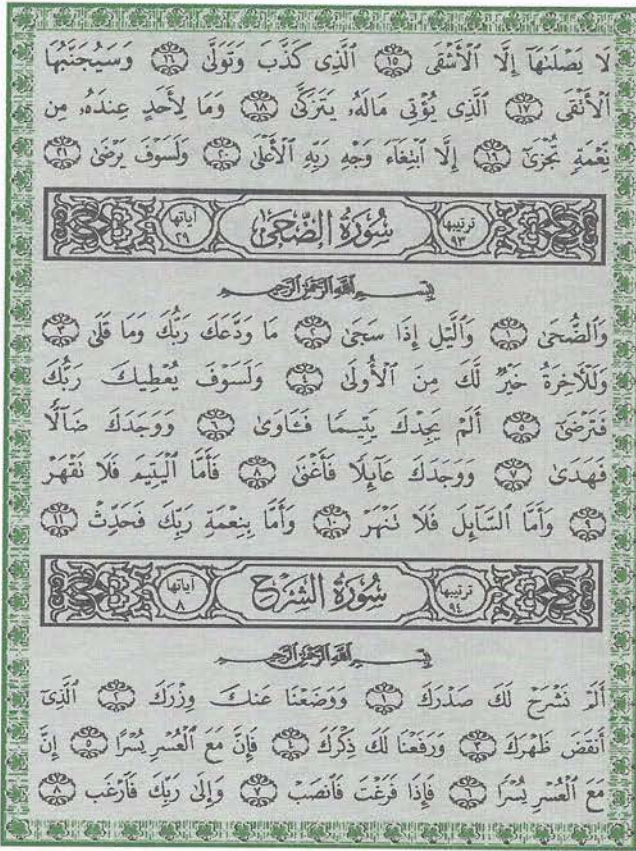 لَا يَصْلَىٰهَآ إِلَّا ٱلْأَشْقَى ١٥ ٱلَّذِى كَذَّبَ وَتَوَلَّىٰ ١٦ وَسَيُجَنَّبُهَا
ٱلْأَتْقَى ١٧ ٱلَّذِى يُؤْتِى مَالَهُۥ يَتَزَكَّىٰ ١٨ وَمَا لِأَحَدٍ عِندَهُۥ مِن
نِّعْمَةٍ تُجْزَىٰٓ ١٩ إِلَّا ٱبْتِغَآءَ وَجْهِ رَبِّهِ ٱلْأَعْلَىٰ ٢٠ وَلَسَوْفَ يَرْضَىٰ ٢١
ترتيبها ٩٣ سُورَةُ الضُّحَىٰ آياتها ٢٩
بِسْمِ ٱللَّهِ ٱلرَّحْمَٰنِ ٱلرَّحِيمِ
وَٱلضُّحَىٰ ١ وَٱلَّيْلِ إِذَا سَجَىٰ ٢ مَا وَدَّعَكَ رَبُّكَ وَمَا قَلَىٰ ٣
وَلَلْءَاخِرَةُ خَيْرٌ لَّكَ مِنَ ٱلْأُولَىٰ ٤ وَلَسَوْفَ يُعْطِيكَ رَبُّكَ
فَتَرْضَىٰٓ ٥ أَلَمْ يَجِدْكَ يَتِيمًا فَـَٔاوَىٰ ٦ وَوَجَدَكَ ضَآلًّا
فَهَدَىٰ ٧ وَوَجَدَكَ عَآئِلًا فَأَغْنَىٰ ٨ فَأَمَّا ٱلْيَتِيمَ فَلَا تَقْهَرْ
٩ وَأَمَّا ٱلسَّآئِلَ فَلَا تَنْهَرْ ١٠ وَأَمَّا بِنِعْمَةِ رَبِّكَ فَحَدِّثْ ١١
ترتيبها ٩٤ سُورَةُ الشَّرْحِ آياتها ٨
بِسْمِ ٱللَّهِ ٱلرَّحْمَٰنِ ٱلرَّحِيمِ
أَلَمْ نَشْرَحْ لَكَ صَدْرَكَ ١ وَوَضَعْنَا عَنكَ وِزْرَكَ ٢ ٱلَّذِىٓ
أَنقَضَ ظَهْرَكَ ٣ وَرَفَعْنَا لَكَ ذِكْرَكَ ٤ فَإِنَّ مَعَ ٱلْعُسْرِ يُسْرًا ٥ إِنَّ
مَعَ ٱلْعُسْرِ يُسْرًا ٦ فَإِذَا فَرَغْتَ فَٱنصَبْ ٧ وَإِلَىٰ رَبِّكَ فَٱرْغَب ٨